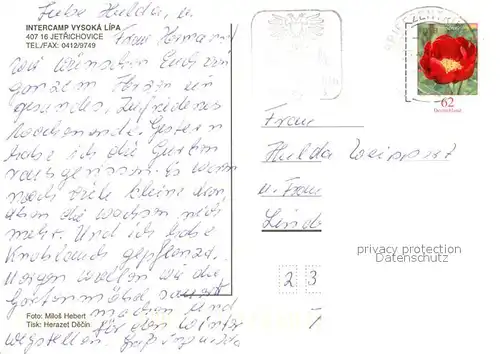 Liebe Hulda, u.
INTERCAMP VYSOKÁ LÍPA
407 16 JETŘICHOVICE
TEL./FAX: 0412/9749
Frau Hermand
wir wünschen Euch von
ganzem Herzen ein
gesundes, zufriedenes
Wochenende. Gestern
habe ich die Gurken
rausgerissen. Es waren
noch viele kleine dran,
aber die wachsen nicht
mehr. Und ich habe
Knoblauch gepflanzt.
Morgen wollen wir die
Gartenmöbel
machen und
für den Winter
wegstellen.
Foto: Miloš Hebert
Tisk: Herazet Děčín
BRIEFZENTRUM
62
Deutschland
Frau
Hulda
u. Frau
Lind
privacy protection
Datenschutz
2 3